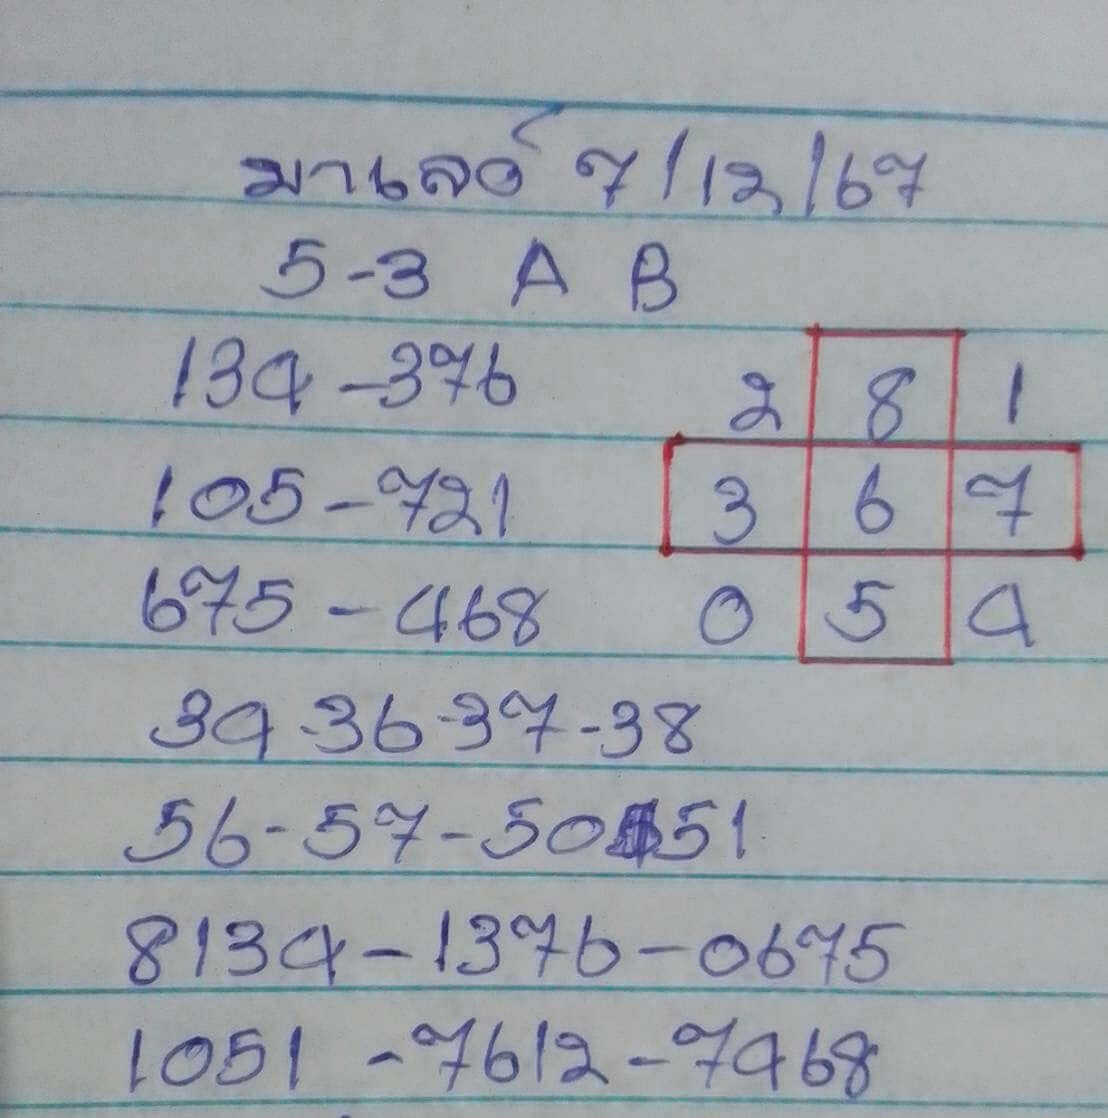 มาเลย์ 7/12/67
5-3 A B
134-376
105-721
675-468
2 8 1
3 6 7
0 5 4
34-36-37-38
56-57-50-51
8134-1376-0675
1051-7612-7468